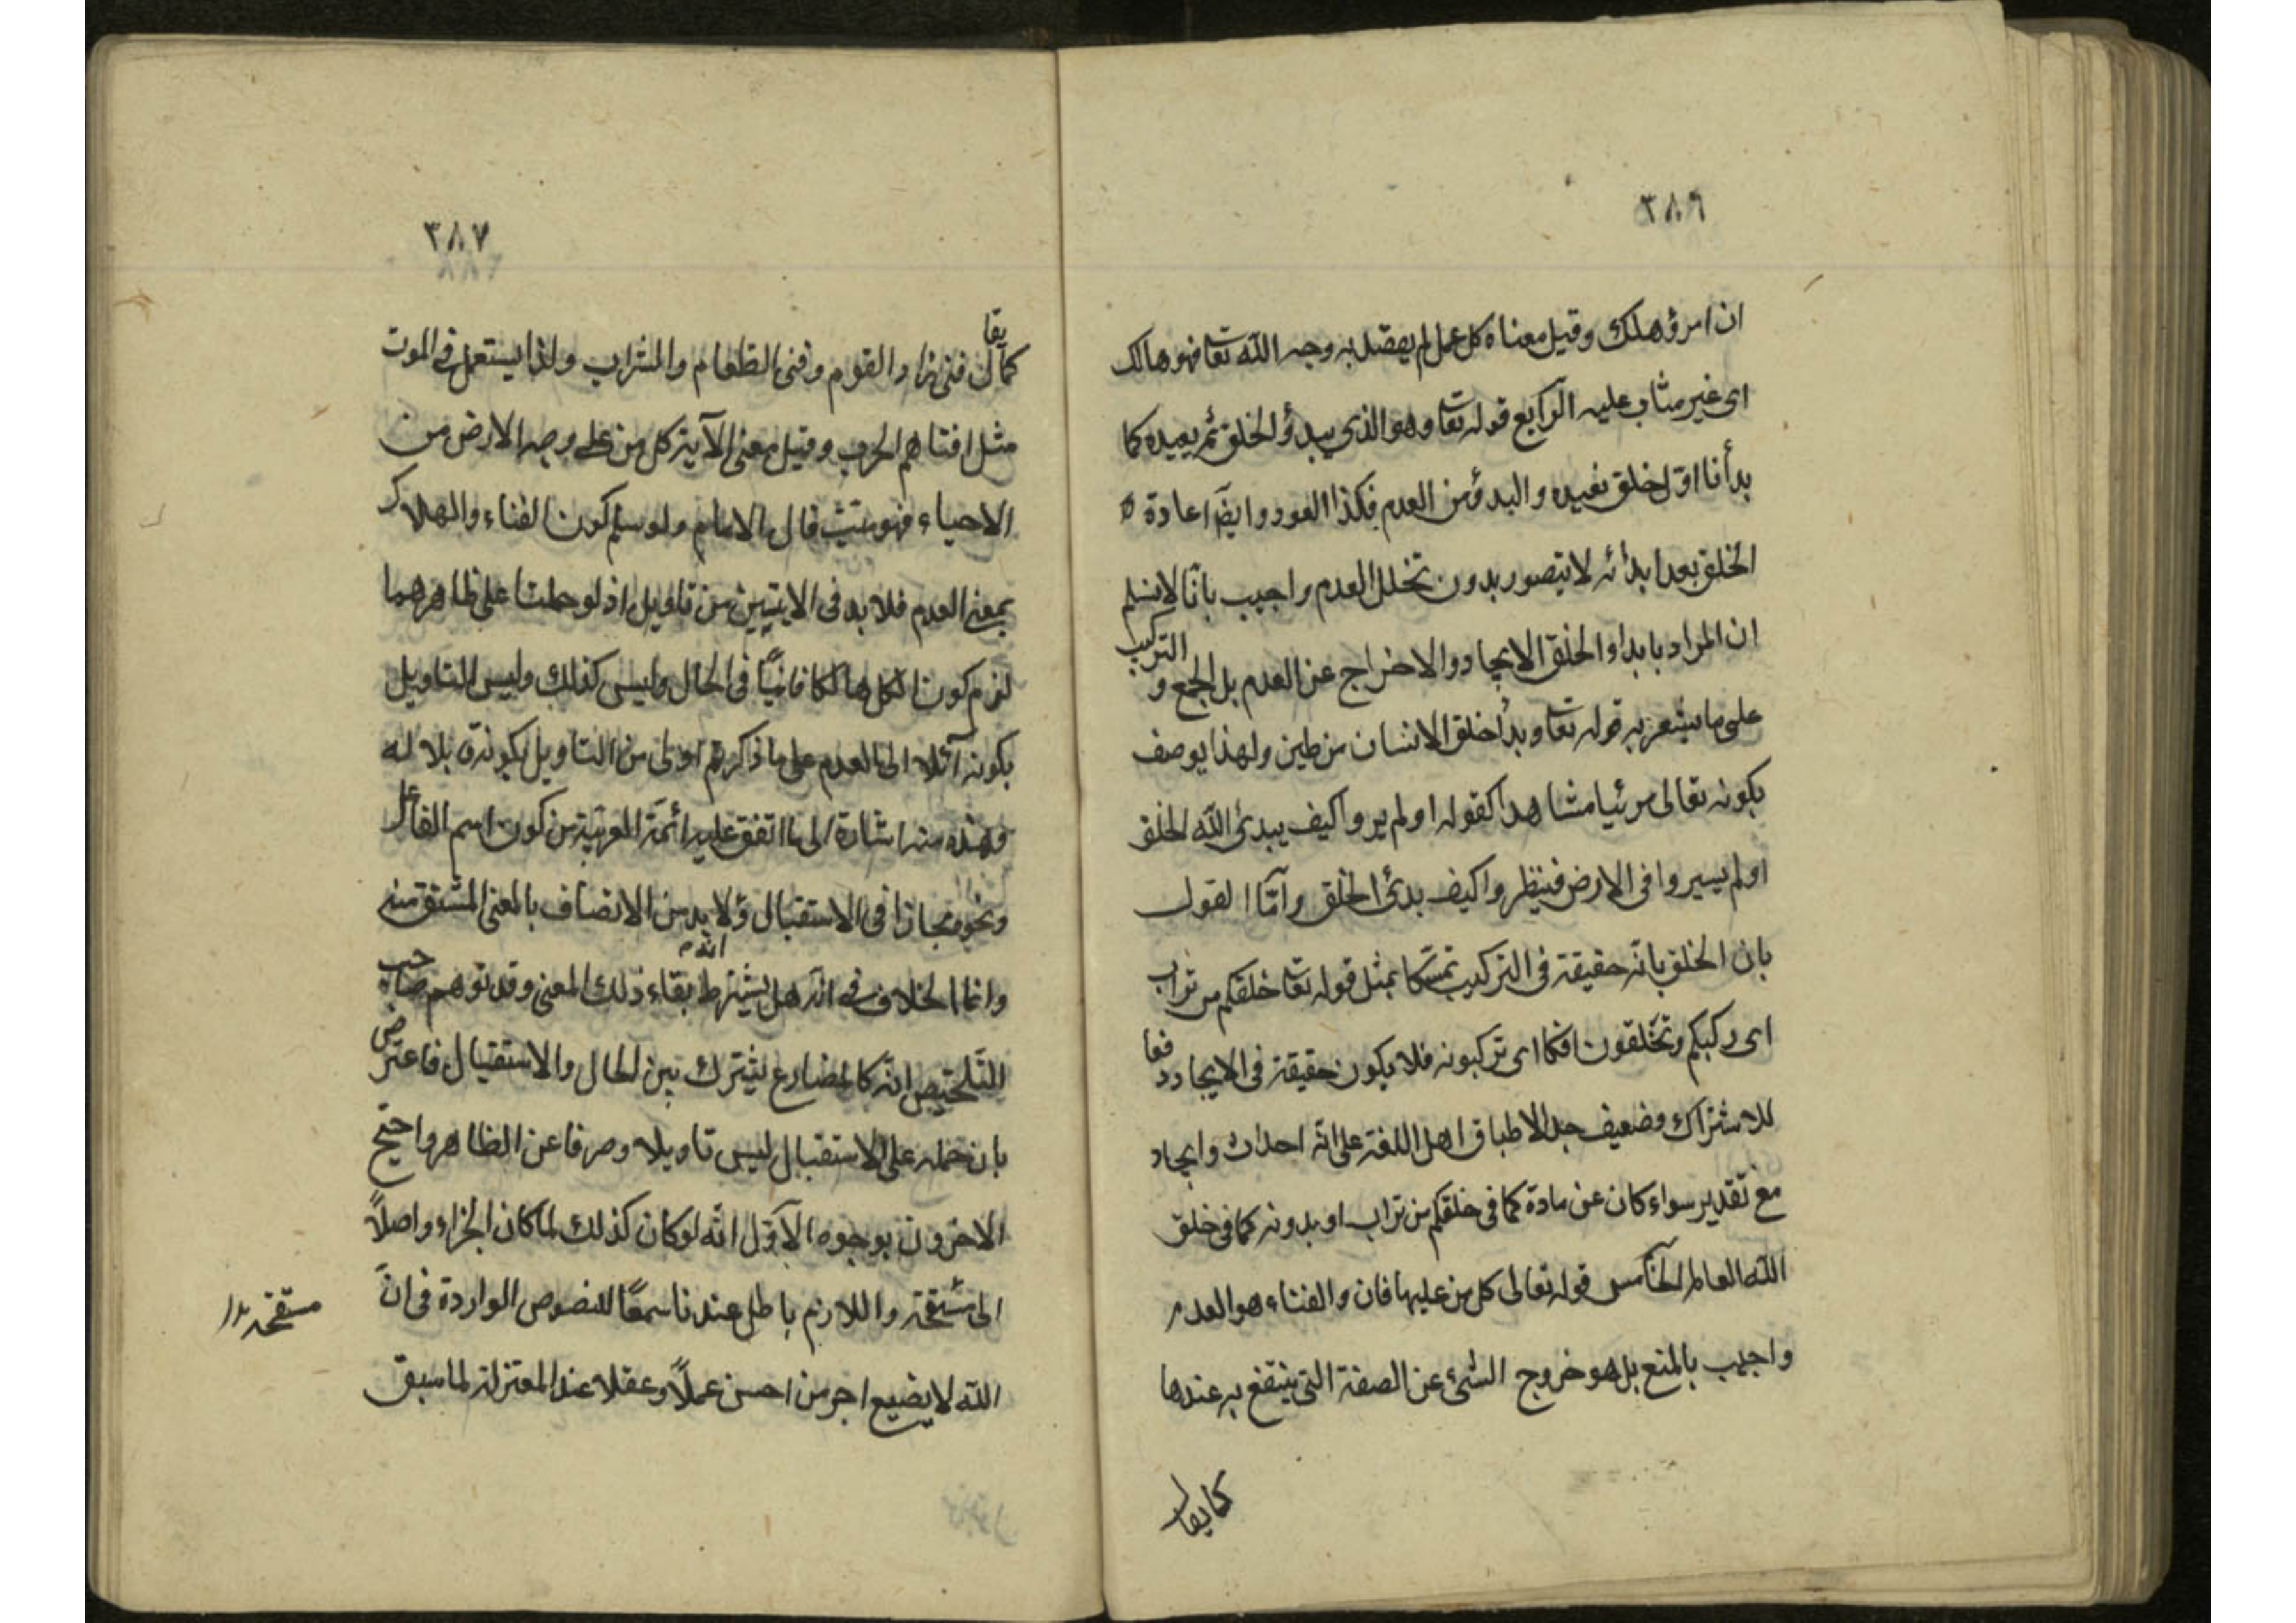 ٣٨٦
ان امرؤ هلك وقيل معناه كل عمل لم يقصد به وجه الله تعا فهو هالك
اى غير مثاب عليه الرابع قوله تعا وهو الذي يبدؤ الخلق ثم يعيده كما
بدأنا اول خلق نعيده والبدؤ من العدم فكذا العود وايضا اعادة
الخلق بعد ابدائه لا يتصور بدون تخلل العدم واجيب بانا لا نسلم
ان المراد بابداء الخلق الايجاد والاخراج عن العدم بل الجمع و التركيب
على ما يشعر به قوله تعا وبدأ خلق الانسان من طين ولهذا يوصف
بكونه تعالى مرئيا مشاهدا كقوله اولم يروا كيف يبدئ الله الخلق
اولم يسيروا فى الارض فينظروا كيف بدئ الخلق وامّا القول
بان الخلق بانه حقيقة فى التركيب تمسّكا بمثل قوله تعا خلقكم من تراب
اى ركبكم وتخلقون افكا اى تركبونه فلا يكون حقيقة فى الايجاد دفعا
للاشتراك وضعيف جدا لاطباق اهل اللغة على انه احداث وايجاد
مع تقدير سواء كان عن مادة كما فى خلقكم من تراب او بدونه كما فى خلق
الله العالم الخامس قوله تعالى كل من عليها فان والفناء هو العدم
واجيب بالمنع بل هو خروج الشئ عن الصفة التى ينتفع به عندها
كما يقال
٣٨٧
كما يقال فنى زاد القوم وفنى الطعام والشراب ولذا يستعمل فى الموت
مثل افناهم الحرب وقيل معنى الآية كل من على وجه الارض من
الاحياء فهو ميت قال الامام ولو سلم كون الفناء والهلاك
بمعنى العدم فلا بد فى الايتين من تاويل اذ لو حملتا على ظاهرهما
لزم كون الكل هالكا فانيًا فى الحال وليس كذلك وليس التاويل
بكونه آئلا الى العدم على ما ذكرتم اولى من التاويل بكونه قابلا له
وهذه منه اشارة الى ما اتفق عليه ائمة العربية من كون اسم الفاعل
ونحوه مجازا فى الاستقبال ولا بد من الاتصاف بالمعنى المشتق منه
وانما الخلاف فى انه هل يشترط بقاء ذلك المعنى وقد توهم صاحب
التلخيص انه كالمضارع يشترك بين الحال والاستقبال فاعترض
بان حمله على الاستقبال ليس تاويلا وصرفا عن الظاهر واحتج
الاخرون بوجوه الاوّل انه لو كان كذلك لما كان الجزاء واصلاً
الى مستحقه واللازم باطل عندنا سمعًا للنصوص الواردة فى انّ
مستحقه
الله لا يضيع اجر من احسن عملاً وعقلا عند المعتزلة لما سبق